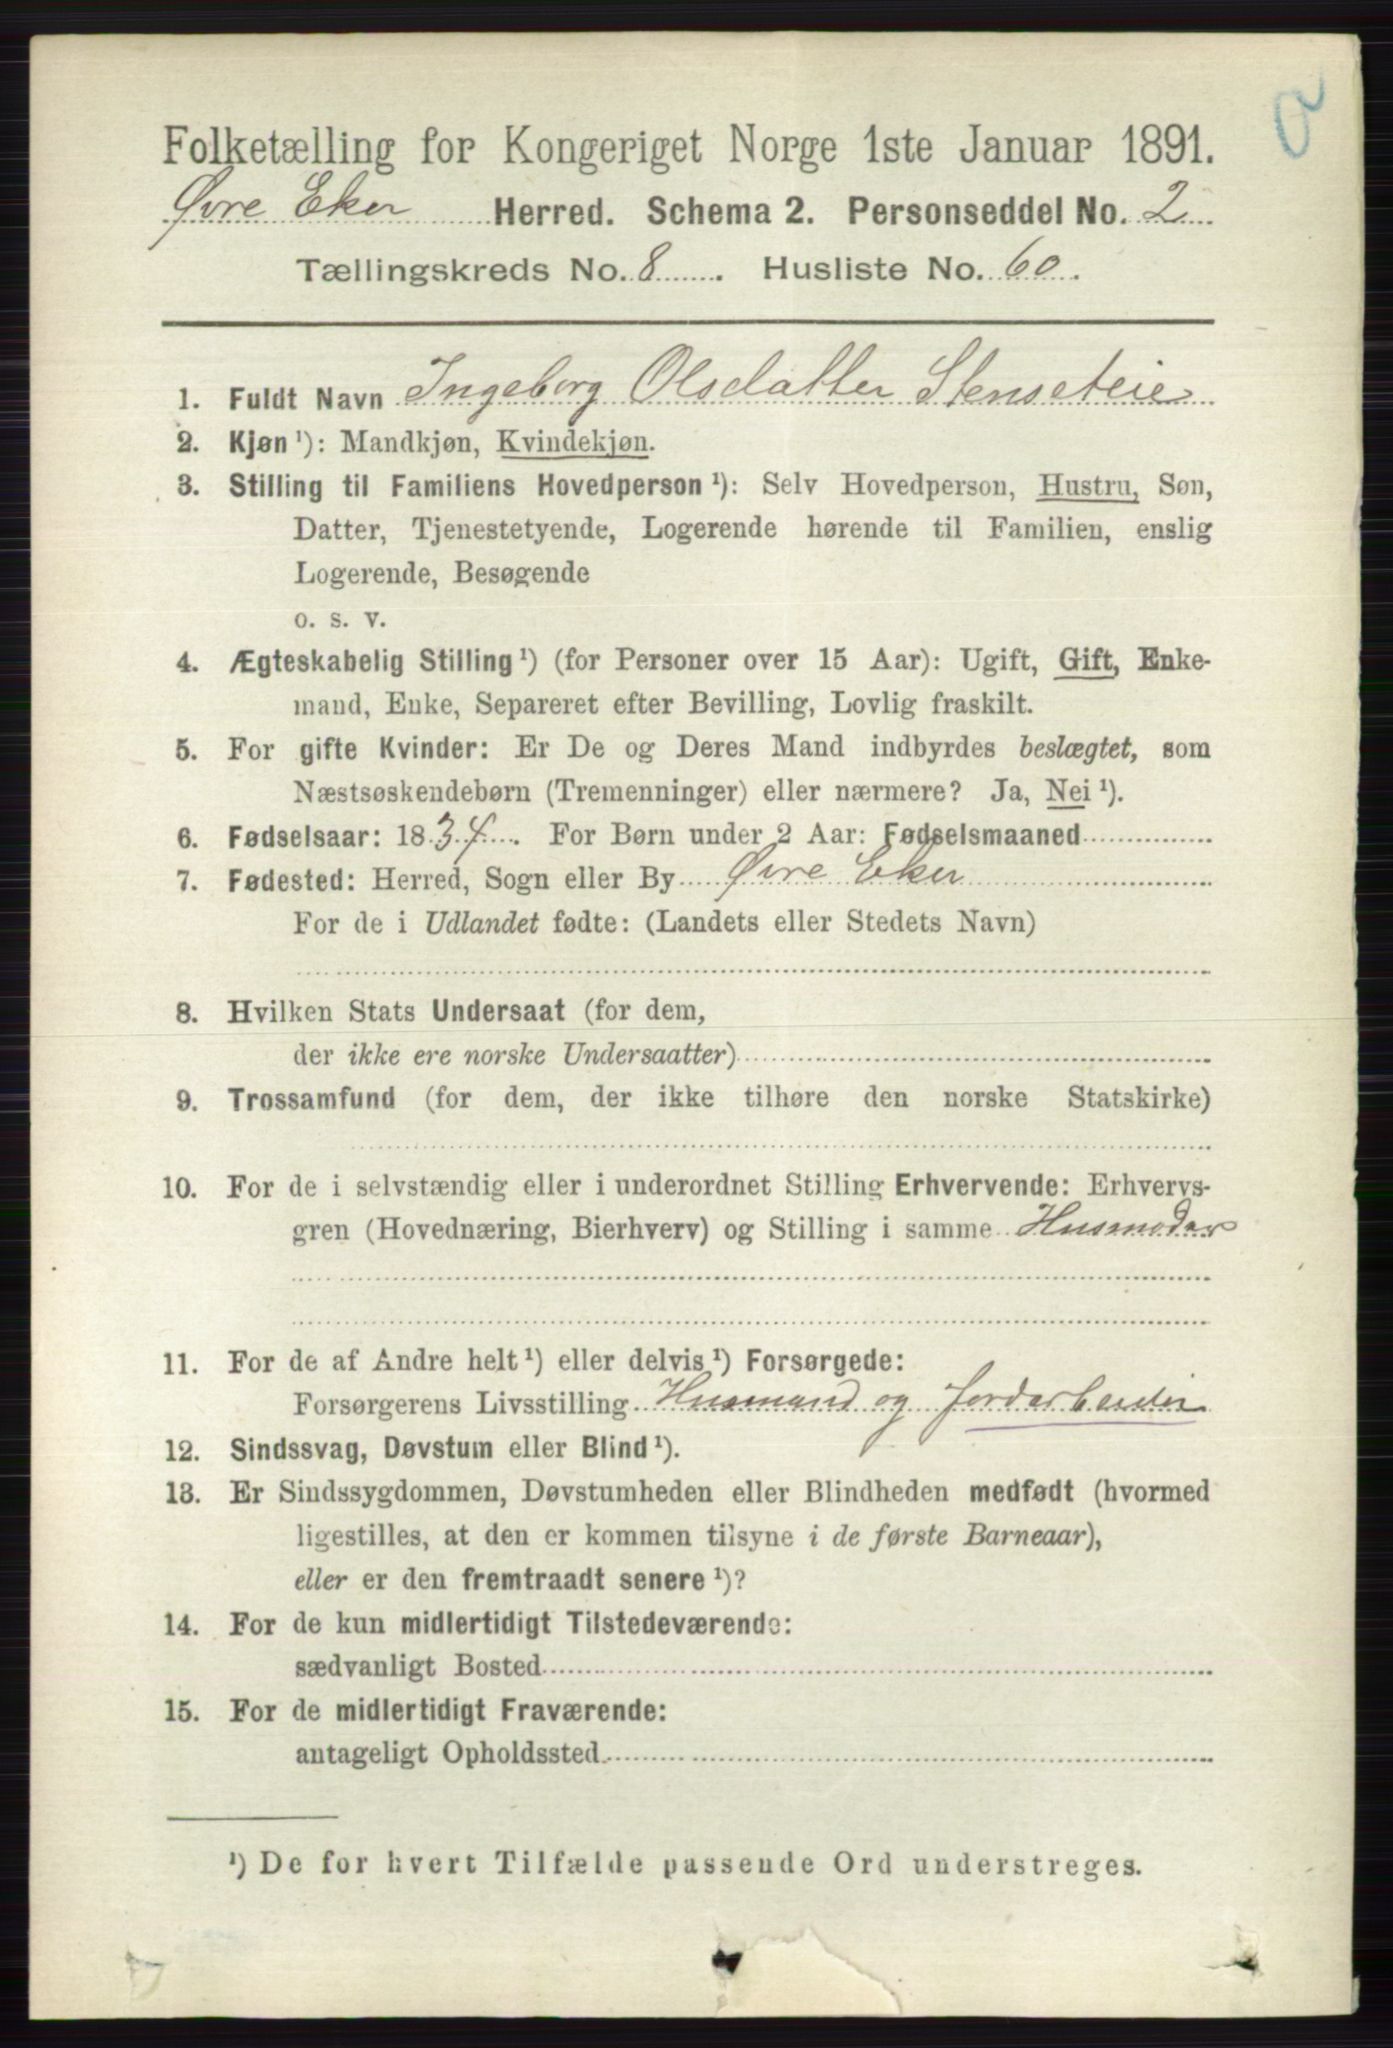 Folketælling for Kongeriget Norge 1ste Januar 1891.
Øvre Eker Herred. Schema 2. Personseddel No. 2
Tællingskreds No. 8. Husliste No. 60.
1. Fuldt Navn Ingeborg Olsdatter Stenseteie
2. Kjøn ¹): Mandkjøn, Kvindekjøn.
3. Stilling til Familiens Hovedperson ¹): Selv Hovedperson, Hustru, Søn,
Datter, Tjenestetyende, Logerende hørende til Familien, enslig
Logerende, Besøgende
o. s. v.
4. Ægteskabelig Stilling ¹) (for Personer over 15 Aar): Ugift, Gift, Enke-
mand, Enke, Separeret efter Bevilling, Lovlig fraskilt.
5. For gifte Kvinder: Er De og Deres Mand indbyrdes beslægtet, som
Næstsøskendebørn (Tremenninger) eller nærmere? Ja, Nei ¹).
6. Fødselsaar: 1834. For Børn under 2 Aar: Fødselsmaaned
7. Fødested: Herred, Sogn eller By Øvre Eker
For de i Udlandet fødte: (Landets eller Stedets Navn)
8. Hvilken Stats Undersaat (for dem,
der ikke ere norske Undersaatter)
9. Trossamfund (for dem, der ikke tilhøre den norske Statskirke)
10. For de i selvstændig eller i underordnet Stilling Erhvervende: Erhvervs-
gren (Hovednæring, Bierhverv) og Stilling i samme Husmoder
11. For de af Andre helt ¹) eller delvis ¹) Forsørgede:
Forsørgerens Livsstilling Husmand og Jordarbeider
12. Sindssvag, Døvstum eller Blind ¹).
13. Er Sindssygdommen, Døvstumheden eller Blindheden medfødt (hvormed
ligestilles, at den er kommen tilsyne i de første Barneaar),
eller er den fremtraadt senere ¹)?
14. For de kun midlertidigt Tilstedeværende:
sædvanligt Bosted
15. For de midlertidigt Fraværende:
antageligt Opholdssted
¹) De for hvert Tilfælde passende Ord understreges.